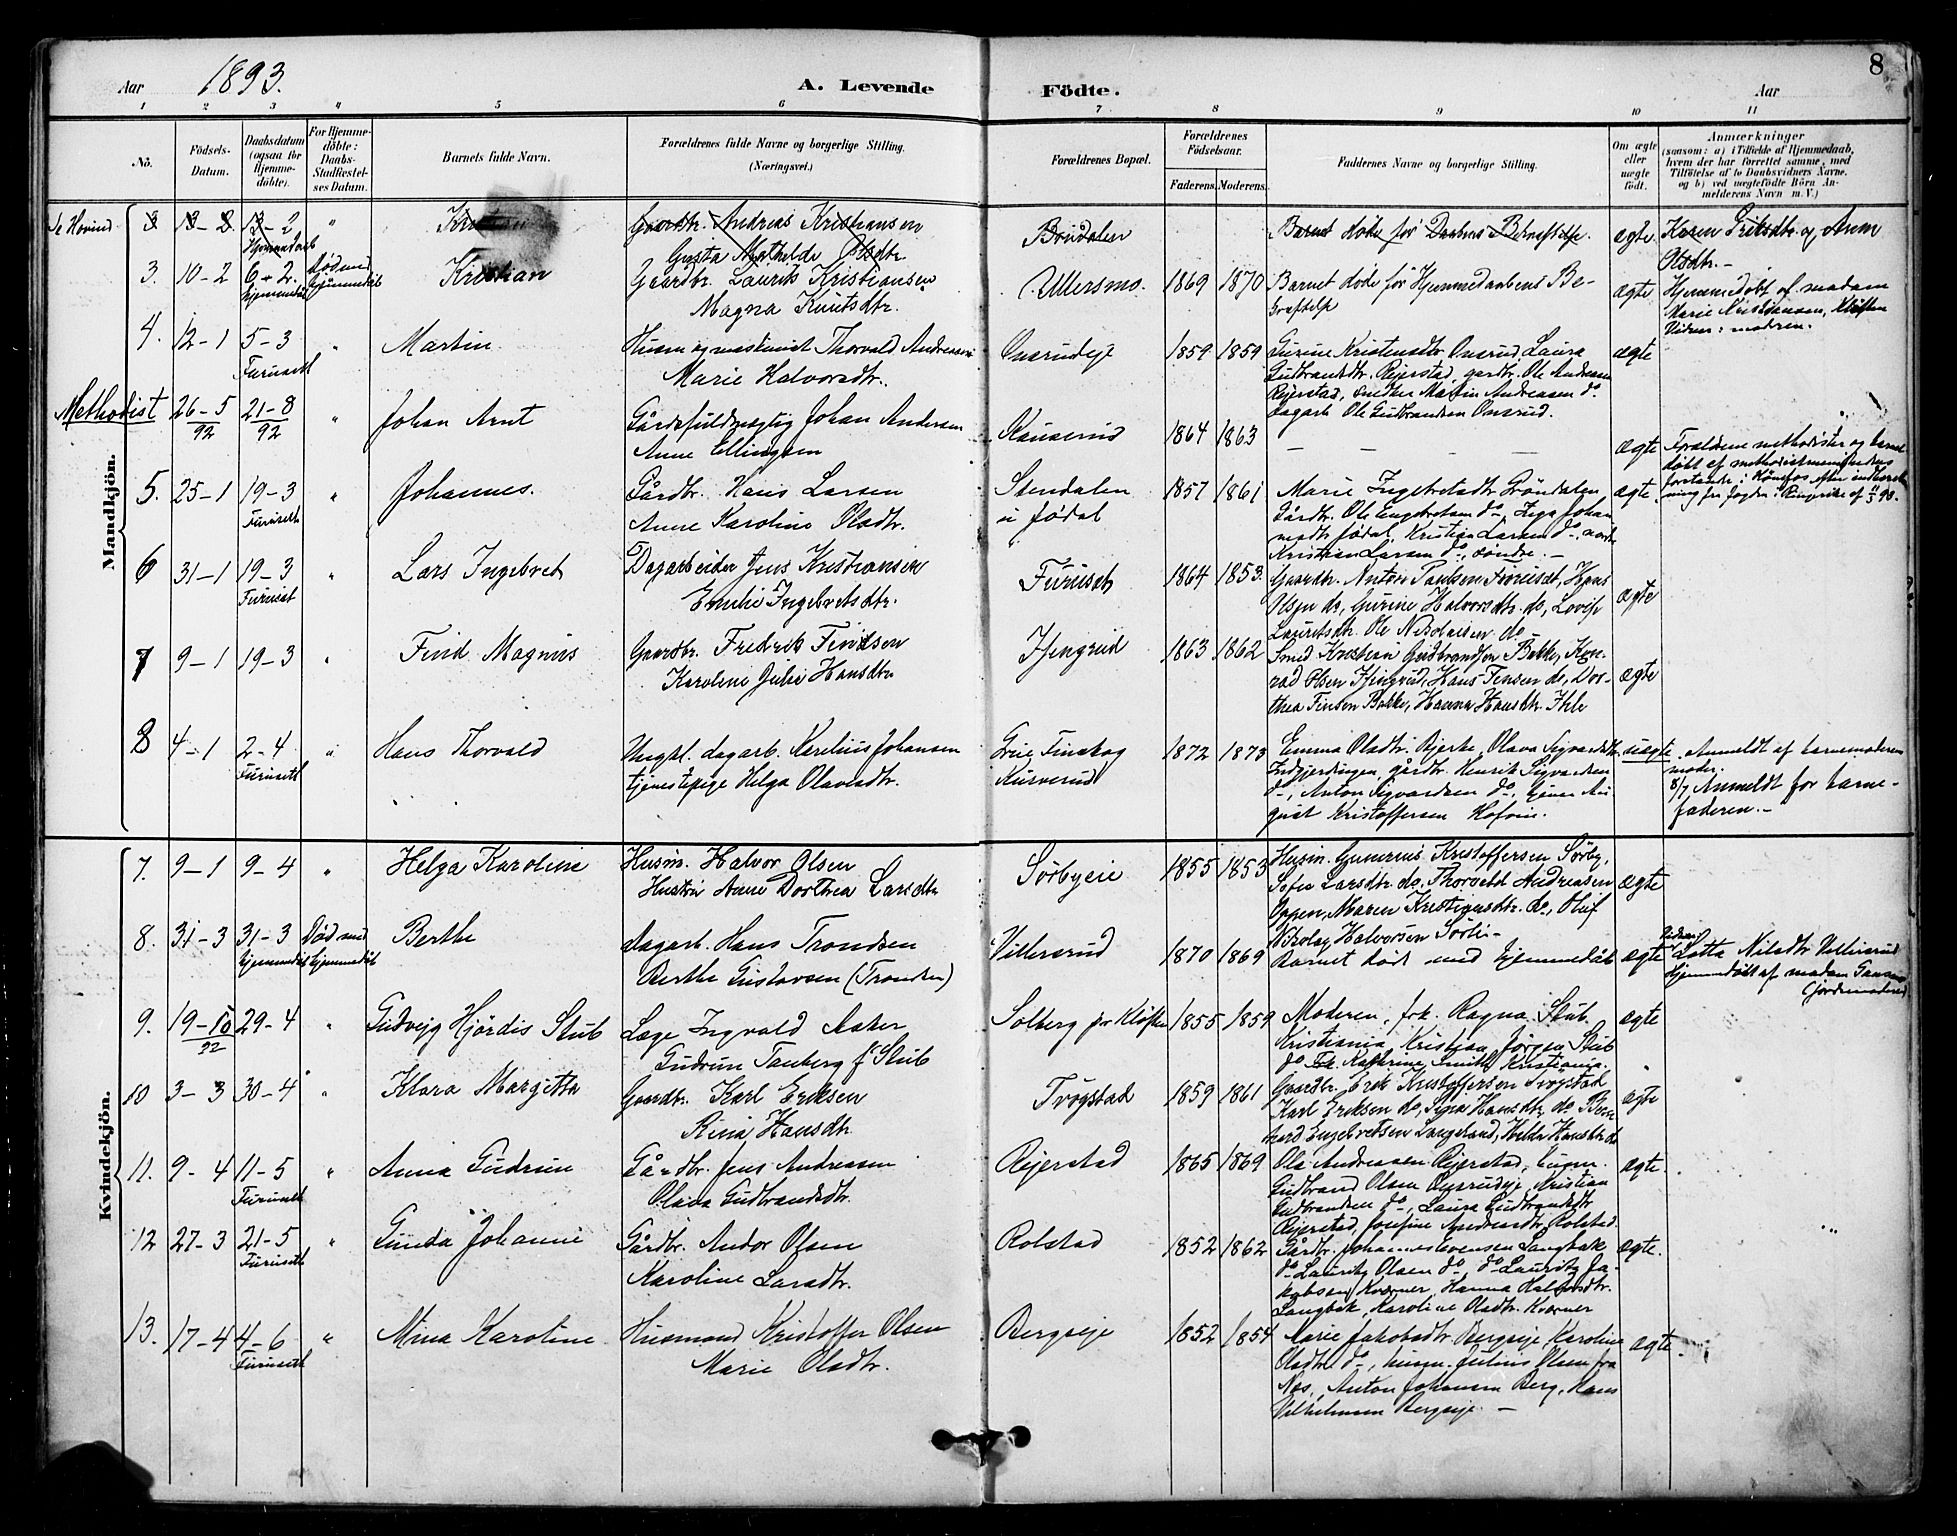 8
Aar 1893. A. Levende Födte. Aar
1 2 3 4 5 6 7 8 9 10 11
No.
Fødsels-Datum.
Daabsdatum (ogsaa for Hjemme-döbte).
For Hjemme-döbte: Daabs-Stadfestel-ses Datum.
Barnets fulde Navn.
Forældrenes fulde Navne og borgerlige Stilling.
(Næringsvei.)
Forældrenes Bopæl.
Forældrenes Födselsaar.
Faderens. Moderens.
Faddernes Navne og borgerlige Stilling.
Om ægte eller uægte födt.
Anmærkninger
(saasom: a) i Tilfælde af Hjemmedaab,
hvem der har forrettet samme, med
Tilföielse af to Daabsvidners Navne,
og b) ved uægtefödte Börn An-
melderens Navn m. V.)
Mandkjön.
Se Hovind 3 13-2 Kristian
Gaardbr. Andreas Kristiansen
Gusta Mathilde Olsdtr.
Brudalen
Barnet døde før Daabens Bekræftelse. ægte.
Olsdtr. -
3. 10-2 6-2. Hjemmedøbt Død med Hjemmedåb Kristian
Gaardbr. Laurits Kristiansen
Magna Knutsdtr.
Ullersmo. 1869 1870
Barnet døde før Hjemmedaabens Be-
kræftelse
ægte
Hjemmedøbt af madam
Marie Kristiansen, Kløften
4. 12-1 5-3 Furuseth " Martin
Husm og maskinist Thorvald Andreassen
Marie Halvorsdtr.
Onsrudeje 1859 1859
Gurine Kristensdtr. Onsrud, Laura
Gudbrandsdtr. Rejerstad, gardbr. Ole Andreasen
Rejerstad, snedker Martin Andreasen do.
dagarb. Ole Gudbrandsen Onsrud.
ægte
Methodist 26-5/92 21-8/92 " Johan Arnt
Gårdsfuldmægtig Johan Andersen
Anne Ellingsen
1864 1863 - - - ægte
Forældrene methodister og barnet
døbt af methodistmenighedens
5. 25-1 19-3 Furuseth " Johannes.
Gårdbr. Hans Larsen
Anne Karoline Olsdtr.
Stendalen
i Jødal
1857 1861
Marie Ingebretsdtr Grøndalen
Kristian Larsen do, søndre. -
ægte.
6 31-1 19-3 Furuset " Lars Ingebret
Dagarbeider Jens Kristiansen
Emelie Ingebretsdtr.
Furuseth 1864 1853.
Gaardbr. Anton Paulsen Furuset, Hans
Olsen do, Gurine Halvorsdtr. do, Lovise
Lauritsdtr. Ole Nikolaisen do
ægte
7 9-1 19-3 " Find Magnus
Gaardbr. Fredrik Findsen
Karoline Julie Hansdtr
Hjengrud 1863 1862
Smed Kristian Gudbrandsen Bakke, Kon-
rad Olsen Hjengrud, Hans Finsen do, Dor-
thea Finsen Bakke, Hanna Hansdtr. Ihle
ægte
8 4-1 2-4 Furuseth " Hans Thorvald
Ungkl. dagarb. Karelius Johansen
tjenestepige Helga Olavesdtr.
1872 1873
Emma Olsdtr. Bjerke, Olava Sigvardsdtr.
gårdbr. Henrik Sigvardsen
do, Anton Sigvardsen do,
gust Kristoffersen Hofvin.
uægte
Anmeldt af barnemoderens
moder.
8/7 Anmeldt for barne-
faderen. -
Kvindekjön.
7. 9-1 9-4 " Helga Karoline
Husm. Halvor Olsen
Hustru Anne Dorthea Larsdtr
Sørbyeie 1855 1853
Husm. Gunerius Kristoffersen Sørby,
Sofie Larsdtr. do. Thorvald Andreasen
Oppen, Maren Kristiansdtr. do, Oluf
Nikolay Halvorsen Sørli -
ægte
8. 31-3 31-3 Hjemmedøbt Død med hjemmedåb Berthe
Dagarb. Hans Trondsen
Berthe Gustavsen (Trondsen)
Villersrud 1870 1869
Barnet død med hjemmedåb
ægte
Lotta Nilsdtr Villersrud
Hjemmedøbt af madam
(jordemoderen)
9. 19-10/92 29-4 " Gudvejg Hjördis Stub
Læge Ingvald Aaker
Gudrun Tanberg f. Stub
Solberg pr Kløften 1855 1859
Moderen, frk. Ragna Stub
Kristiania, Kristian Jörgen Stub
do Frk. Kathrine Smith, Kristiania.
ægte
10 3-3 30-4 " Klara Margitta
Gaardbr. Karl Eriksen
Rina Hansdtr
Trøgstad 1859 1861
Gaardbr. Erik Kristoffersen Trøgstad
Karl Eriksen do, Signe Hansdtr. do Bern-
hard Engebretsen Langeland, Hilda Hansdtr. do
ægte
11. 9-4 11-5 Furuseth " Anna Gudrun
Gårdbr. Jens Andreasen
Olava Gudbrandsdtr.
Rejerstad 1865 1869
Ole Andreasen Rejerstad, husm.
Gudbrand Olsen Onsrudeje, Kristian
Gudbrandsen do, Laura Gudbrandsdtr
Rejerstad, Josefine Andreasdtr. Rolstad.
ægte.
12 27-3 21-5 Furuseth " Gunda Johanne
Gårdbr. Andor Olsen
Karoline Larsdtr.
Rolstad 1852 1862
Gårdbr. Johannes Evensen Langbak
do Lauritz Olsen do, do Lauritz Ja-
kobsen Kværner, Hanna Halvorsdtr.
Langbak, Karoline Olsdtr. Kværner
ægte.
13. 17-4 4-6 Furuseth " Mina Karoline
Husmand Kristoffer Olsen
Marie Olsdtr.
Bergseje 1852 1854
Marie Jakobsdtr. Bergseje Karoline
Olsdtr. do, husm. Julius Olsen fra
Nes, Anton Johansen Berg, Hans
Vilhelmsen Bergseje. -
ægte.